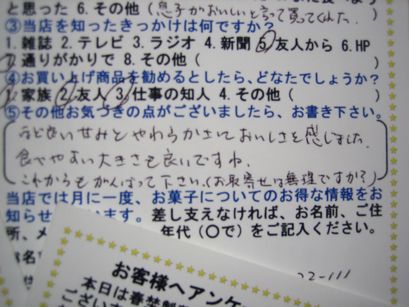 と思った 6.その他(息子がおいしいと言って買てくれた。
③当店を知ったきっかけは何ですか?
1.雑誌 2.テレビ 3.ラジオ 4.新聞 5.友人から 6.HP
7.通りがかりで 8.その他(
④お買い上げ商品を勧めるとしたら、どなたでしょうか?
1.家族 2.友人 3.仕事の知人 4.その他(
⑤その他お気づきの点がございましたら、お書き下さい。
うどよい甘みとやわらかさにておいしさを感じました。
食べやすい大きさも良いですね。
これからもがんばって下さい。(お取寄せは無理ですか?)
当店では月に一度、お菓子についてのお得な情報をお
知らせ います。差し支えなければ、お名前、ご住
所、 年代(〇で)をご記入ください。
お客様へアンケ
本日は春
ございま